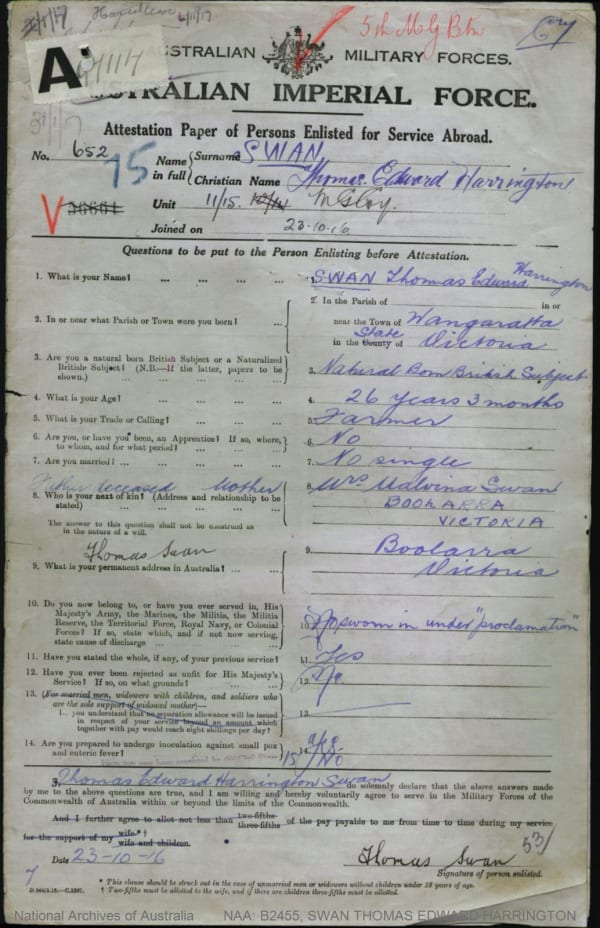 5th M G Btn
A
AUSTRALIAN MILITARY FORCES.
AUSTRALIAN IMPERIAL FORCE.
Attestation Paper of Persons Enlisted for Service Abroad.
No. 652
75
Name in full { Surname SWAN
Christian Name Thomas Edward Harrington
V 36661
Unit 11/15. M G Coy.
Joined on 23-10-16
Questions to be put to the Person Enlisting before Attestation.
1. What is your Name? ... ... ... ... 1. SWAN Thomas Edward Harrington
2. In or near what Parish or Town were you born? ... 2. In the Parish of in or
near the Town of Wangaratta
State
in the County of Victoria
3. Are you a natural born British Subject or a Naturalized
British Subject? (N.B.—If the latter, papers to be
shown.) ... ... ... ... 3. Natural Born British Subject
4. What is your Age? ... ... ... ... 4. 26 years 3 months
5. What is your Trade or Calling? ... ... ... 5. Farmer
6. Are you, or have you been, an Apprentice? If so, where,
to whom, and for what period? ... ... 6. No
7. Are you married? ... ... ... ... 7. No single
Father deceased Mother
8. Who is your next of kin? (Address and relationship to be
stated) ... ... ... ... 8. Mrs Malvina Swan
BOOLARRA
VICTORIA
The answer to this question shall not be construed as
in the nature of a will.
Thomas Swan
9. What is your permanent address in Australia? ... ... 9. Boolarra
Victoria
10. Do you now belong to, or have you ever served in, His
Majesty's Army, the Marines, the Militia, the Militia
Reserve, the Territorial Force, Royal Navy, or Colonial
Forces? If so, state which, and if not now serving,
state cause of discharge ... ... ... 10. No sworn in under "proclamation"
11. Have you stated the whole, if any, of your previous service? 11. Yes
12. Have you ever been rejected as unfit for His Majesty's
Service? If so, on what grounds? ... ... 12. No.
13. (For married men, widowers with children, and soldiers who
are the sole support of widowed mother)—
Do you understand that no separation allowance will be issued
in respect of your service beyond an amount which
together with pay would reach eight shillings per day? 13.
14. Are you prepared to undergo inoculation against small pox
and enteric fever? 14. Yes
15/ No
I, Thomas Edward Harrington Swan do solemnly declare that the above answers made
by me to the above questions are true, and I am willing and hereby voluntarily agree to serve in the Military Forces of the
Commonwealth of Australia within or beyond the limits of the Commonwealth.
And I further agree to allot not less than two-fifths three-fifths of the pay payable to me from time to time during my service
for the support of my wife.*† wife and children.
53/
Date 23-10-16
Thomas Swan
Signature of person enlisted.
7
* This clause should be struck out in the case of unmarried men or widowers without children under 18 years of age.
† Two-fifths must be allotted to the wife, and if there are children three-fifths must be allotted.
National Archives of Australia NAA: B2455, SWAN THOMAS EDWARD HARRINGTON